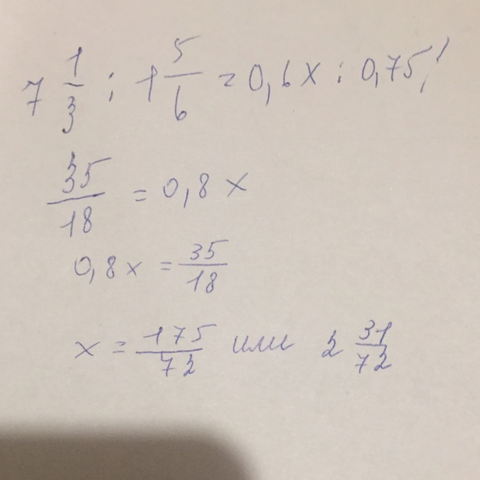 7 1/3 : 1 5/6 = 0,6x : 0,75!
35/18 = 0,8x
0,8x = 35/18
x = 175/72 или 2 31/72